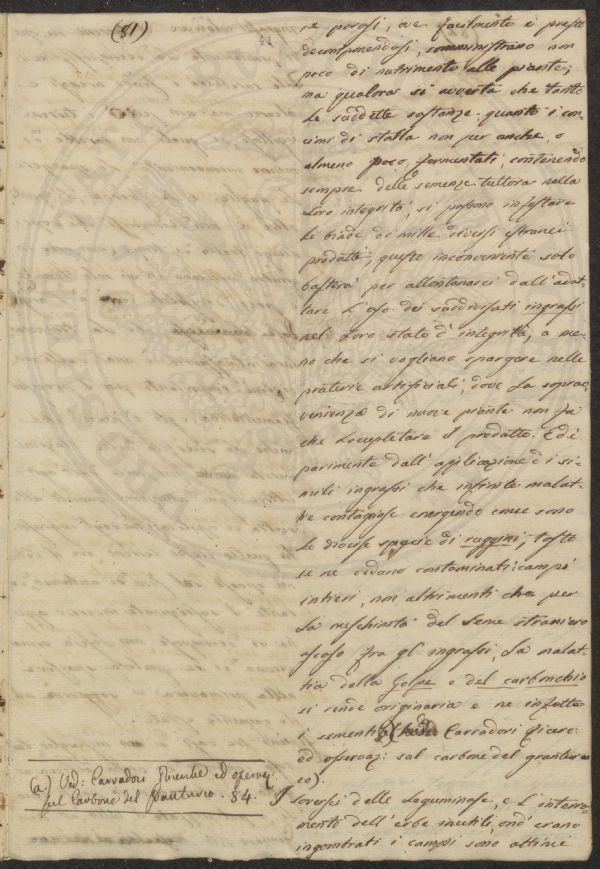 (81)
41
re porosi, ove facilmente e presto
decomponendosi, somministrano non
poco di nutrimento alle piante;
ma qualora si avverta che tanto
le suddette sostanze quanto i con-
cimi di stalla non per anche, o
almeno poco fermentati, contenendo
sempre delle semenze tuttora nella
loro integrità, si possono infestare
le biade di mille diversi stranei
prodotti, questo inconveniente solo
basterà per allontanarci dall'adot-
tare l'uso dei suddivisati ingrassi
nel loro stato d'integrità, a me-
no che si vogliano spargere nelle
praterie artificiali, dove la soprav-
venienza di nuove piante non fa
che locupletare il prodotto. Ed è
parimente dall'applicazione di si-
mili ingrassi che infinite malat-
tie contagiose emergendo come sono
le diverse specie di ruggini, tosto
se ne vedano contaminati i campi
intieri, non altrimenti che per
la meschinità del seme straniero
ascoso fra gl'ingrassi, la malat-
tia della Golpe o del carbonchio
si rende originaria e ne infetta
i sementi Carradori Ricerc:
ed osservaz: sul carbone del grantur-
co).
I sovesci delle Leguminose, e l'interra-
mento dell'erbe inutili, ond'erano
ingombrati i campi sono attivi
(a) Ved: Carradori Ricerche ed osservaz:
sul Carbone del Granturco. 84.